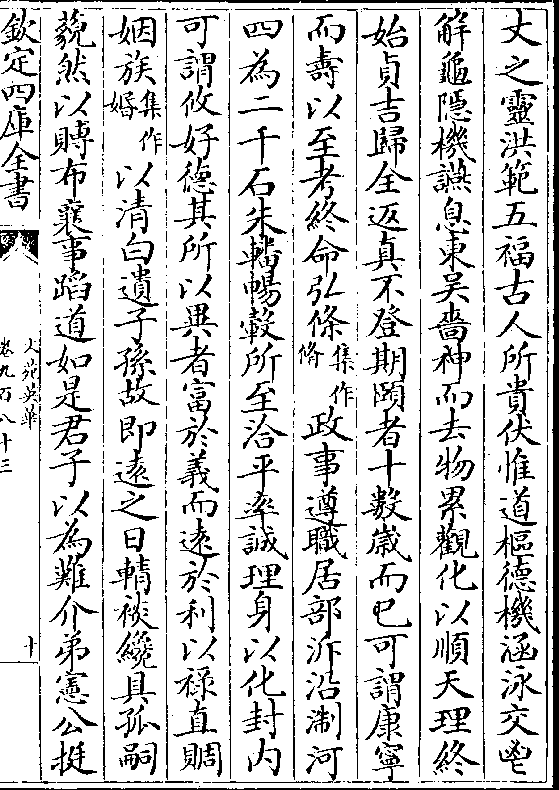 丈之靈洪範五福古人所貴伏惟道樞德機涵泳交鬯
解龜隠機讌息東吴嗇神而去物累觀化以順天理終
始貞吉歸全返真不登期頤者十數歳而已可謂康寧
而壽以至考終命弘條集作脩政事遵職居部泝沿淛河
四為二千石朱轓暢轂所至洽平率誠理身以化封内
可謂攸好德其所以異者富於義而遠於利以禄直賙
姻族集作婚以清白遺子孫故即逺之日輤裧纔具孤嗣
藐然以賻布襄事蹈道如是君子以為難介弟憲公挺
欽定四庫全書
文苑英華
卷九百八十三
十